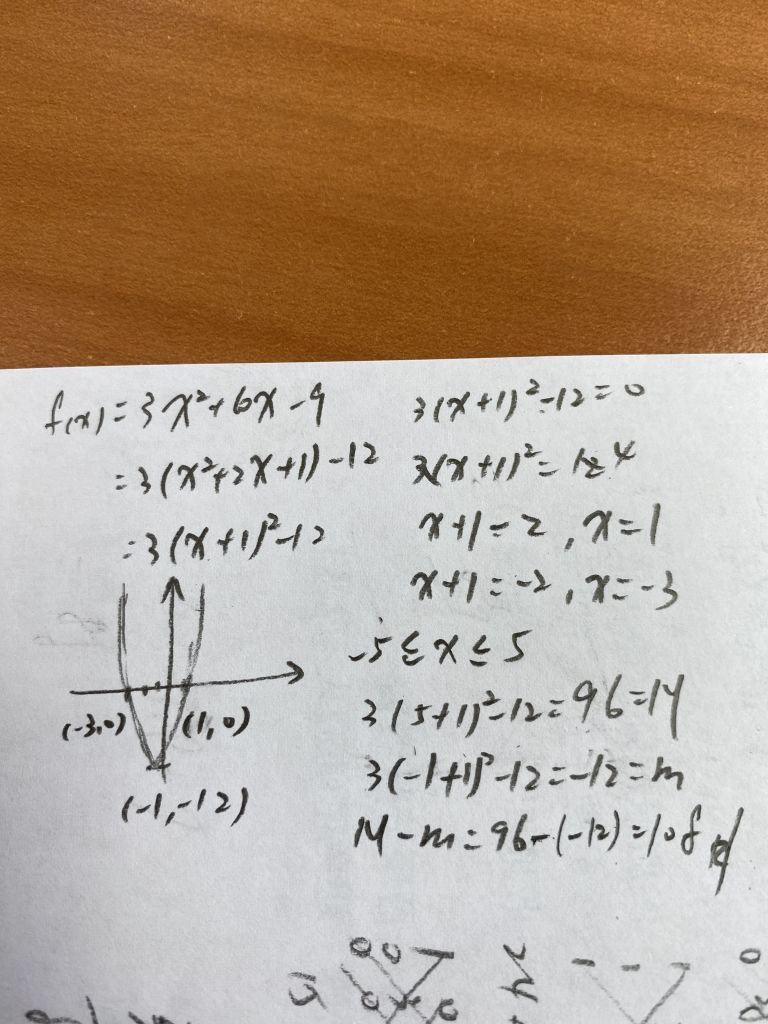 f(x) = 3x²+6x-9
= 3(x²+2x+1)-12
= 3(x+1)²-12
(-3,0)
(1,0)
(-1,-12)
3(x+1)²-12=0
3(x+1)²=12 4
x+1=2, x=1
x+1=-2, x=-3
-5≤x≤5
3(5+1)²-12=96=M
3(-1+1)²-12=-12=m
M-m=96-(-12)=108